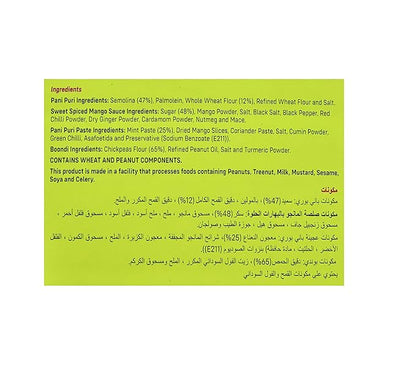 Ingredients
Pani Puri Ingredients: Semolina (47%), Palmolein, Whole Wheat Flour (12%), Refined Wheat Flour and Salt.
Sweet Spiced Mango Sauce Ingredients: Sugar (48%), Mango Powder, Salt, Black Salt, Black Pepper, Red
Chilli Powder, Dry Ginger Powder, Cardamom Powder, Nutmeg and Mace.
Pani Puri Paste Ingredients: Mint Paste (25%), Dried Mango Slices, Coriander Paste, Salt, Cumin Powder,
Green Chilli, Asafoetida and Preservative (Sodium Benzoate (E211)).
Boondi Ingredients: Chickpeas Flour (65%), Refined Peanut Oil, Salt and Turmeric Powder.
CONTAINS WHEAT AND PEANUT COMPONENTS.
This product is made in a facility that processes foods containing Peanuts, Treenut, Milk, Mustard, Sesame,
Soya and Celery.
مكونات
مكونات باني بوري: سميد (47%)، بالمولين ، دقيق القمح الكامل (12%) ، دقيق القمح المكرر والملح.
مكونات صلصة المانجو بالبهارات الحلوة: سكر (48%) ، مسحوق مانجو ، ملح ، ملح أسود ، فلفل أسود ، مسحوق فلفل أحمر ،
مسحوق زنجبيل جاف ، مسحوق هيل ، جوزة الطيب وصولجان.
مكونات عجينة باني بوري: معجون النعناع (25%)، شرائح المانجو المجففة ، معجون الكزبرة ، الملح ، مسحوق الكمون ، الفلفل
الأخضر ، الحلتيت ، مادة حافظة( بنزوات الصوديوم (E211)).
مكونات بوندي: دقيق الحمص (65%) ، زيت الفول السوداني المكرر ، الملح ومسحوق الكركم.
يحتوي على مكونات القمح والفول السوداني